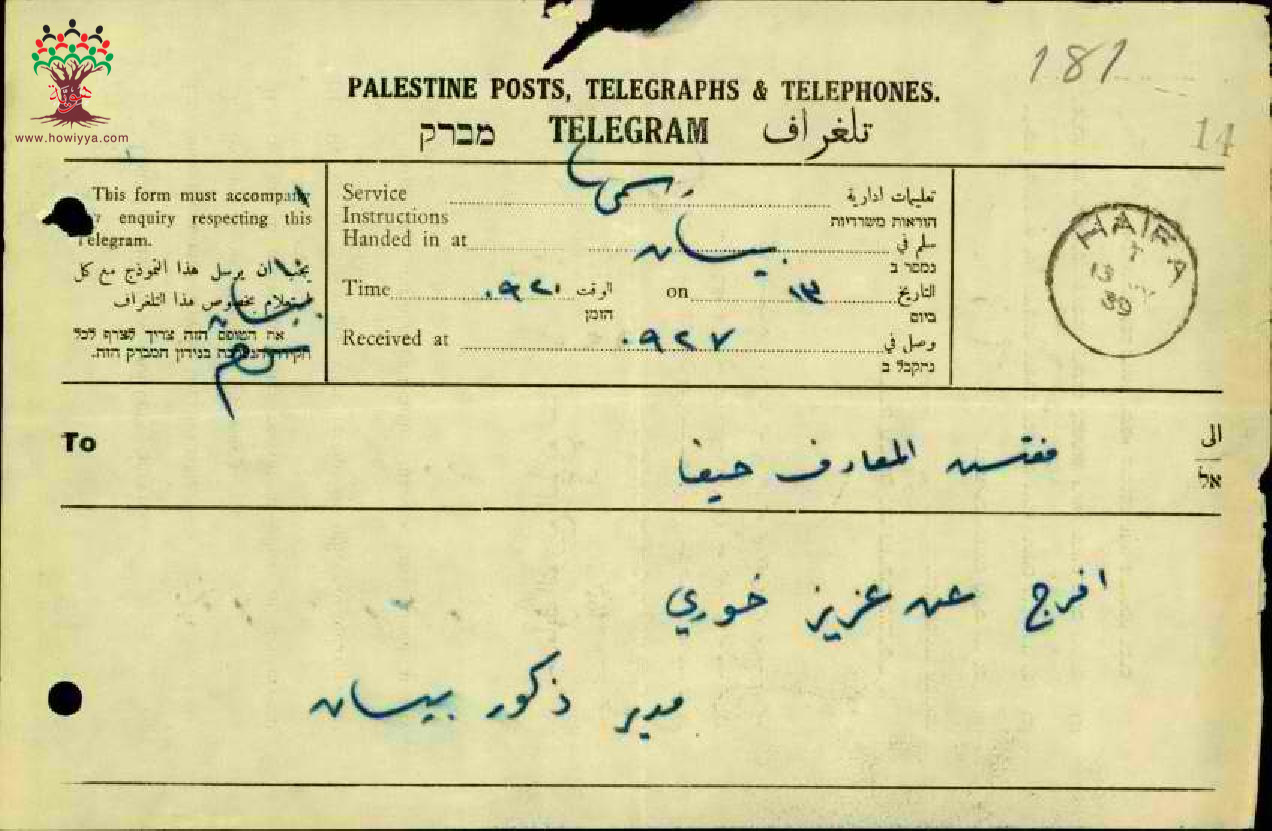 181
PALESTINE POSTS, TELEGRAPHS & TELEPHONES.
מברק TELEGRAM تلغراف
14
www.howiyya.com
This form must accompany
any enquiry respecting this
Telegram.
يجب ان يرسل هذا النموذج مع كل
استعلام بخصوص هذا التلغراف
את הטופס הזה צריך לצרף לכל
חקירה בנידון המברק הזה.
بيسان
Service Instructions رسمي تعليمات ادارية
הוראות משרדיות
Handed in at بيسان سلم في
נמסר ב
Time ٠٩٢٠ الوقت on ١٣ التاريخ
הזמן ביום
Received at ٠٩٢٧ وصل في
נתקבל ב
HAIFA
13
39
To مفتش المعارف حيفا الى
אל
افرج عن عزيز خوري
مدير ذكور بيسان